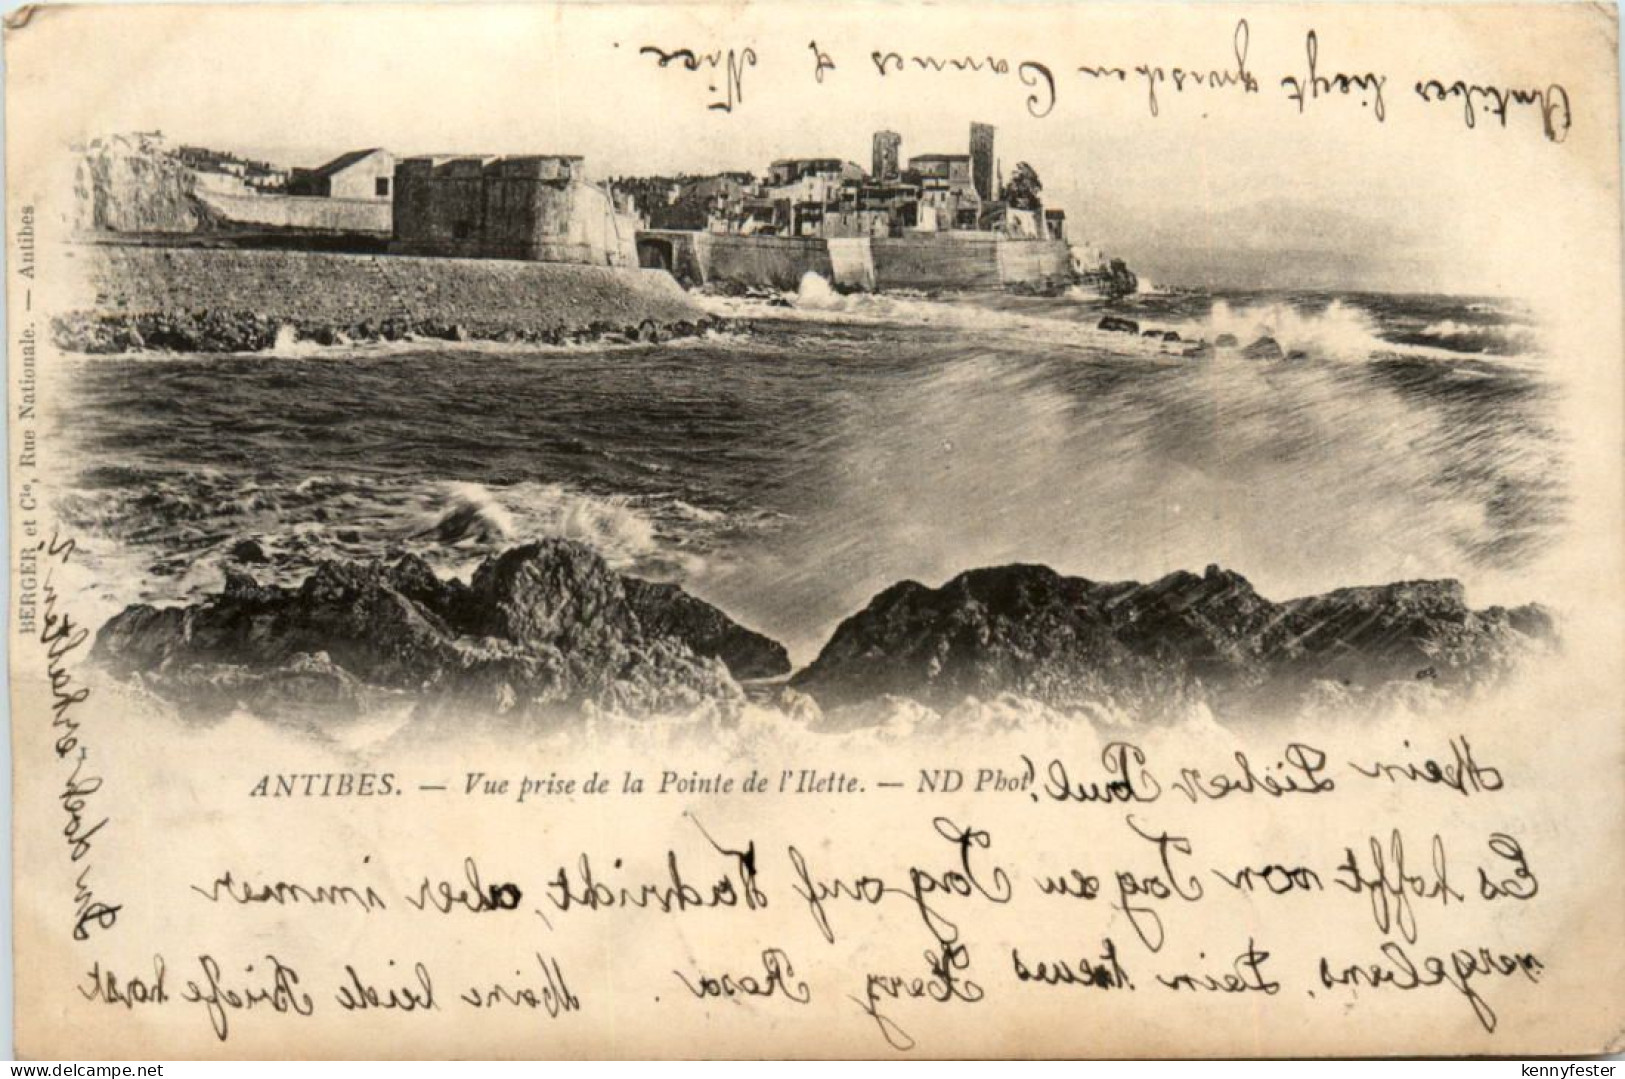 Antibes liegt zwischen Cannes & Nice.
BERGER et Cie, Rue Nationale. — Antibes
ANTIBES. — Vue prise de la Pointe de l'Ilette. — ND Phot.
Mein Lieber Paul!
Es hofft von Tag zu Tag auf Nachricht, aber immer
vergebens. Dein treues Herz Rosa.
Meine beide Briefe hast
Du doch erhalten?
kennyfester